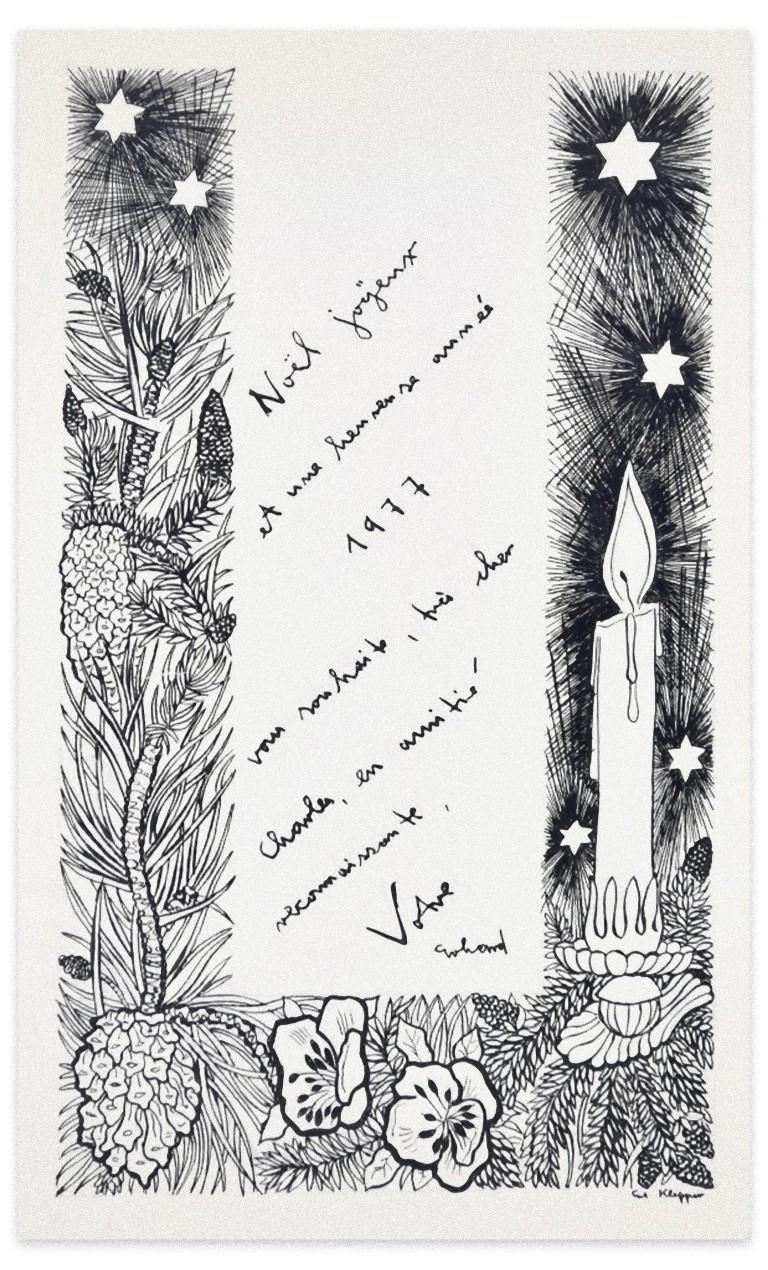 Noël joÿeux
et une heureuse année
1977
vous souhaite, très cher
Charles, en amitié
reconnaissante,
Votre
Klepper